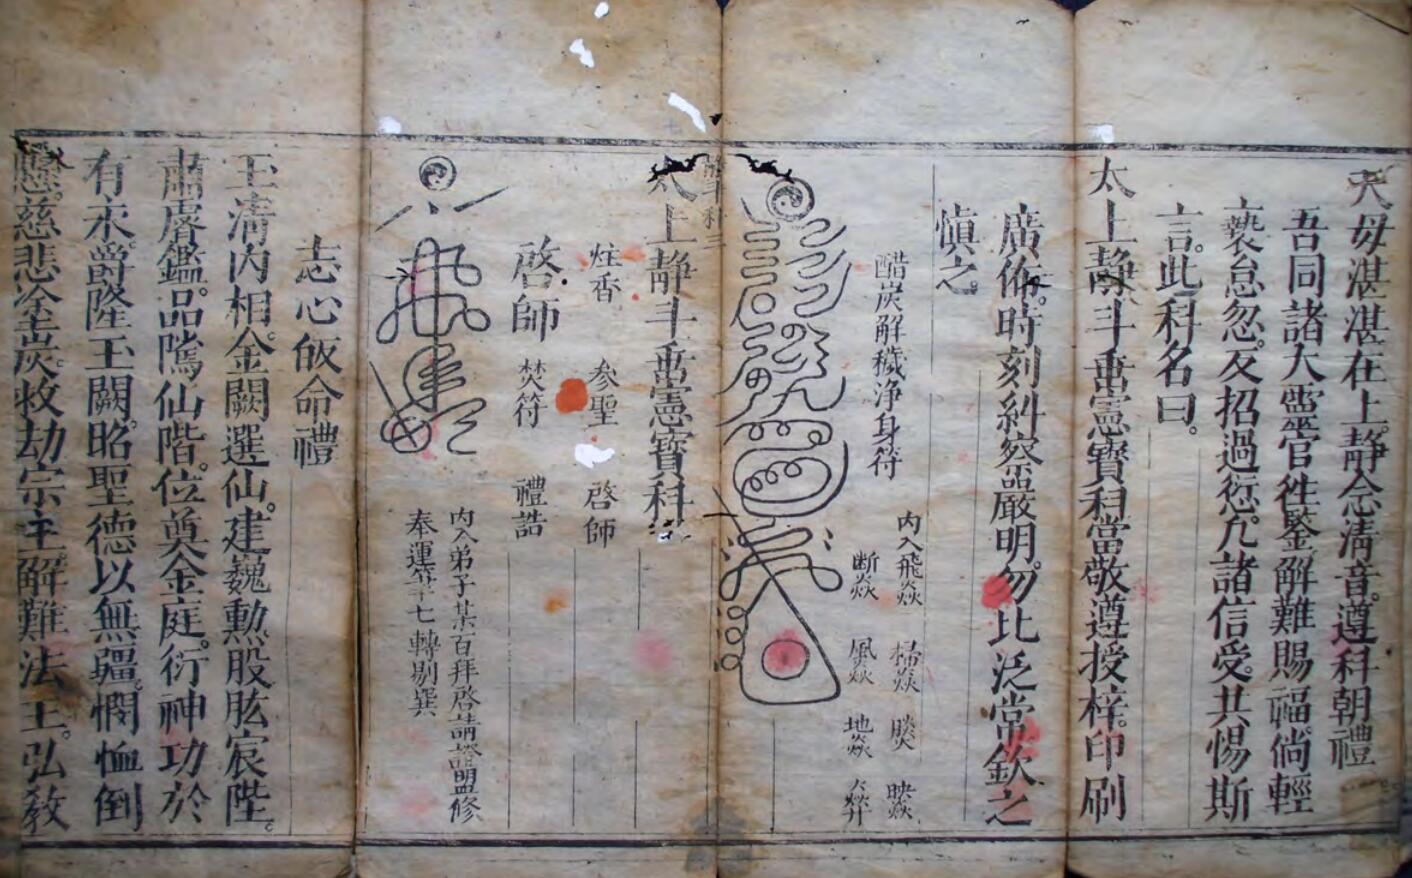 天母湛湛在上。静念清音。遵科朝禮
吾同諸大靈官徃鑒解難賜福。倘輕
褻怠忽。反招過愆。凢諸信受。共惕斯
言。此科名曰。
太上静斗垂憲寳科當敬遵授梓。印刷
廣佈。時刻糾察嚴明。勿比泛常。欽之
慎之。
醋炭解穢浄身符
内入飛焱 掃焱
断焱 風焱 地焱
太上静斗垂憲寳科
炷香 参聖 啓師
啓師 焚符 禮誥
内入弟子某百拜啓請證盟修
奉運筆七轉剔巽
志心皈命禮
玉清内相。金闕選仙。建巍勲股肱宸陛。
肅膺鑑。品隲仙階。位奠金庭。衍神功於
有永。爵隆玉闕。昭聖德以無疆。憫恤倒
懸。慈悲塗炭。救劫宗主。解難法王。弘敎